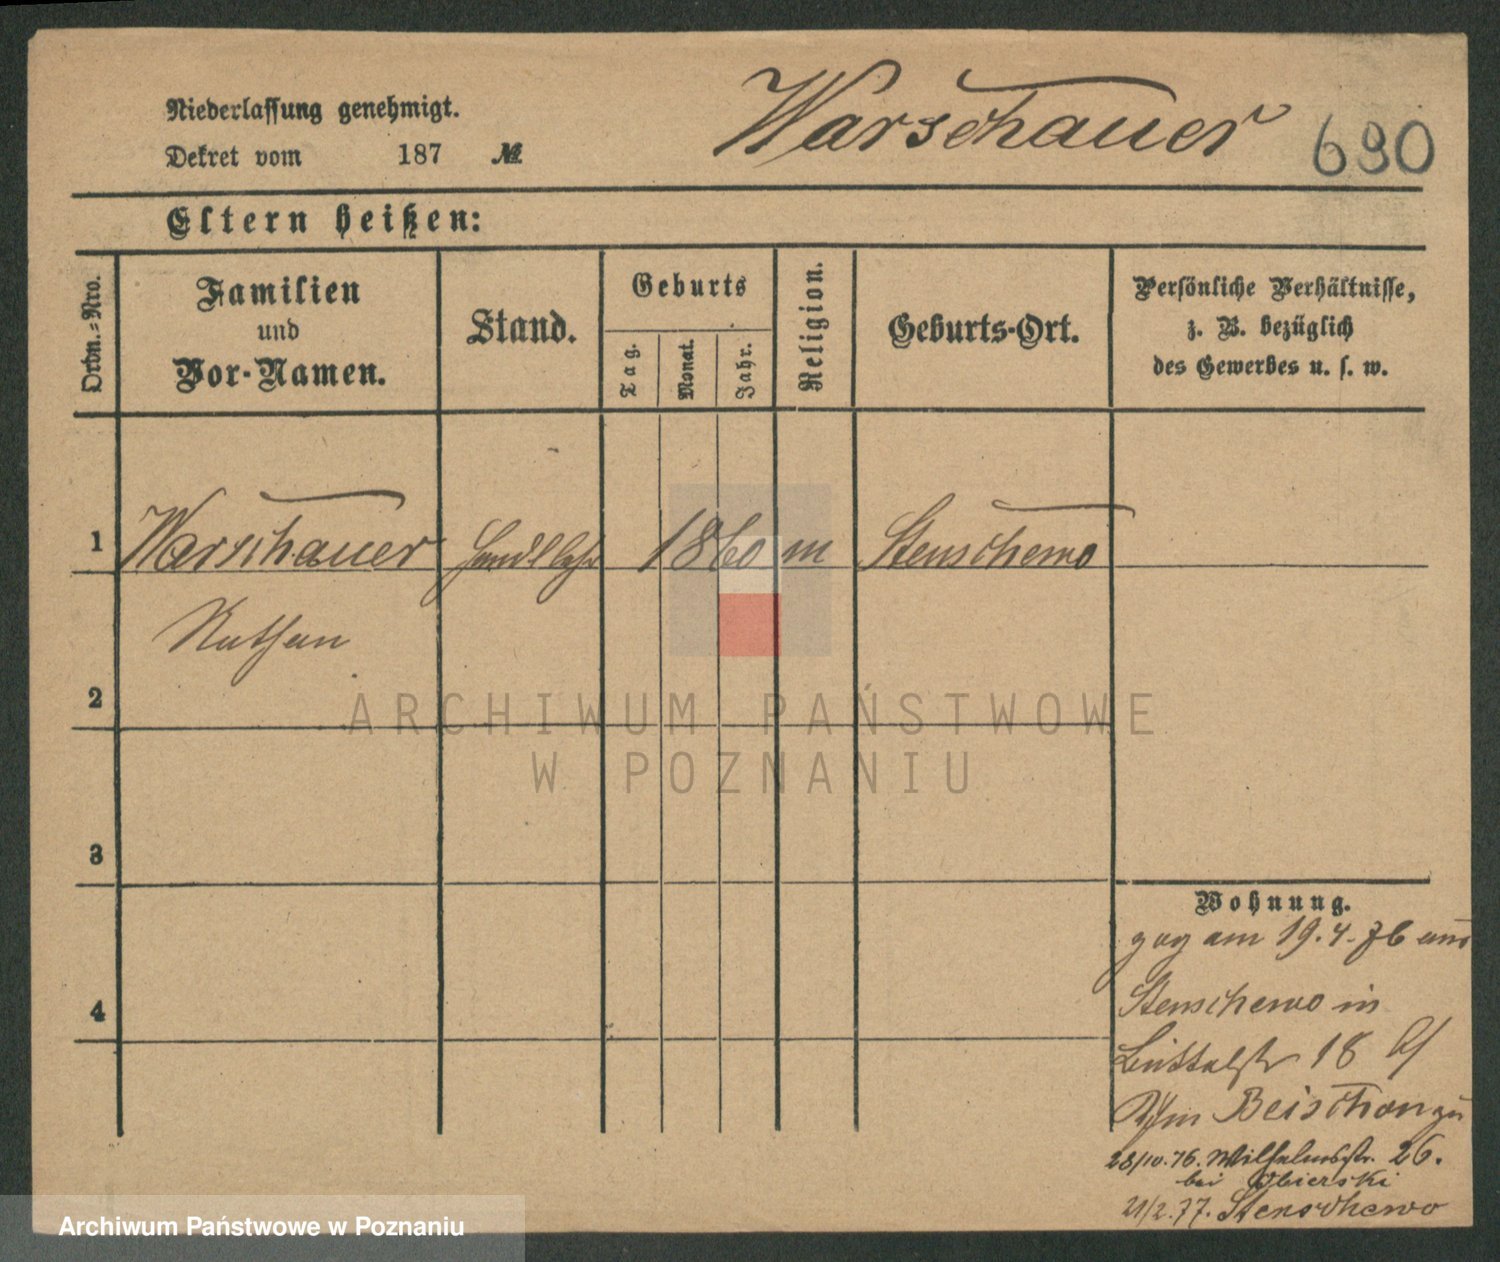 Niederlassung genehmigt.
Dekret vom 187 №
Warschauer 690
Eltern heißen:
Ordn.-Nro.
Familien
und
Vor-Namen.
Stand.
Geburts
Tag.
Monat.
Jahr.
Religion.
Geburts-Ort.
Persönliche Verhältnisse,
z. B. bezüglich
des Gewerbes u. s. w.
1 Warschauer Handl 1860 m Stenschewo
Nathan
2
3
4
Wohnung.
zog am 19.4.76 aus
Stenschewo in
18
Beischon zu
28/10.76. Wilhelmstr. 26.
bei Obierski
21/2.77. Stenschewo
ARCHIWUM PAŃSTWOWE
W POZNANIU
Archiwum Państwowe w Poznaniu